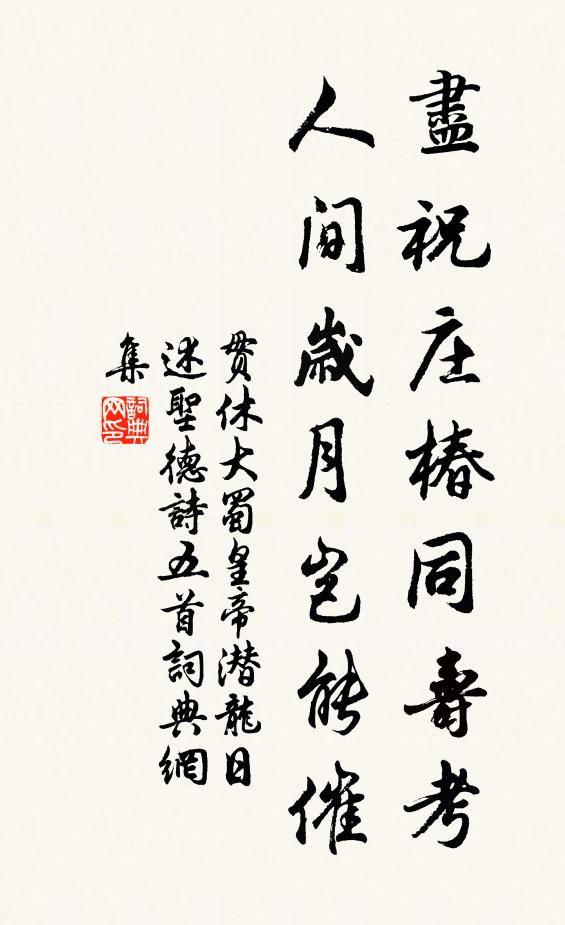 盡祝庄椿同壽考
人间歲月岂能催
贯休大蜀皇帝潜龍日
述聖德詩五首詞典網
集
詞典
网印